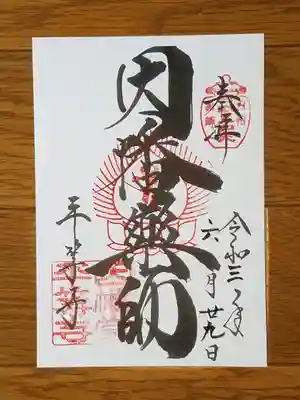 奉拝
令和三年
六月廿九日
因幡薬師
平等寺